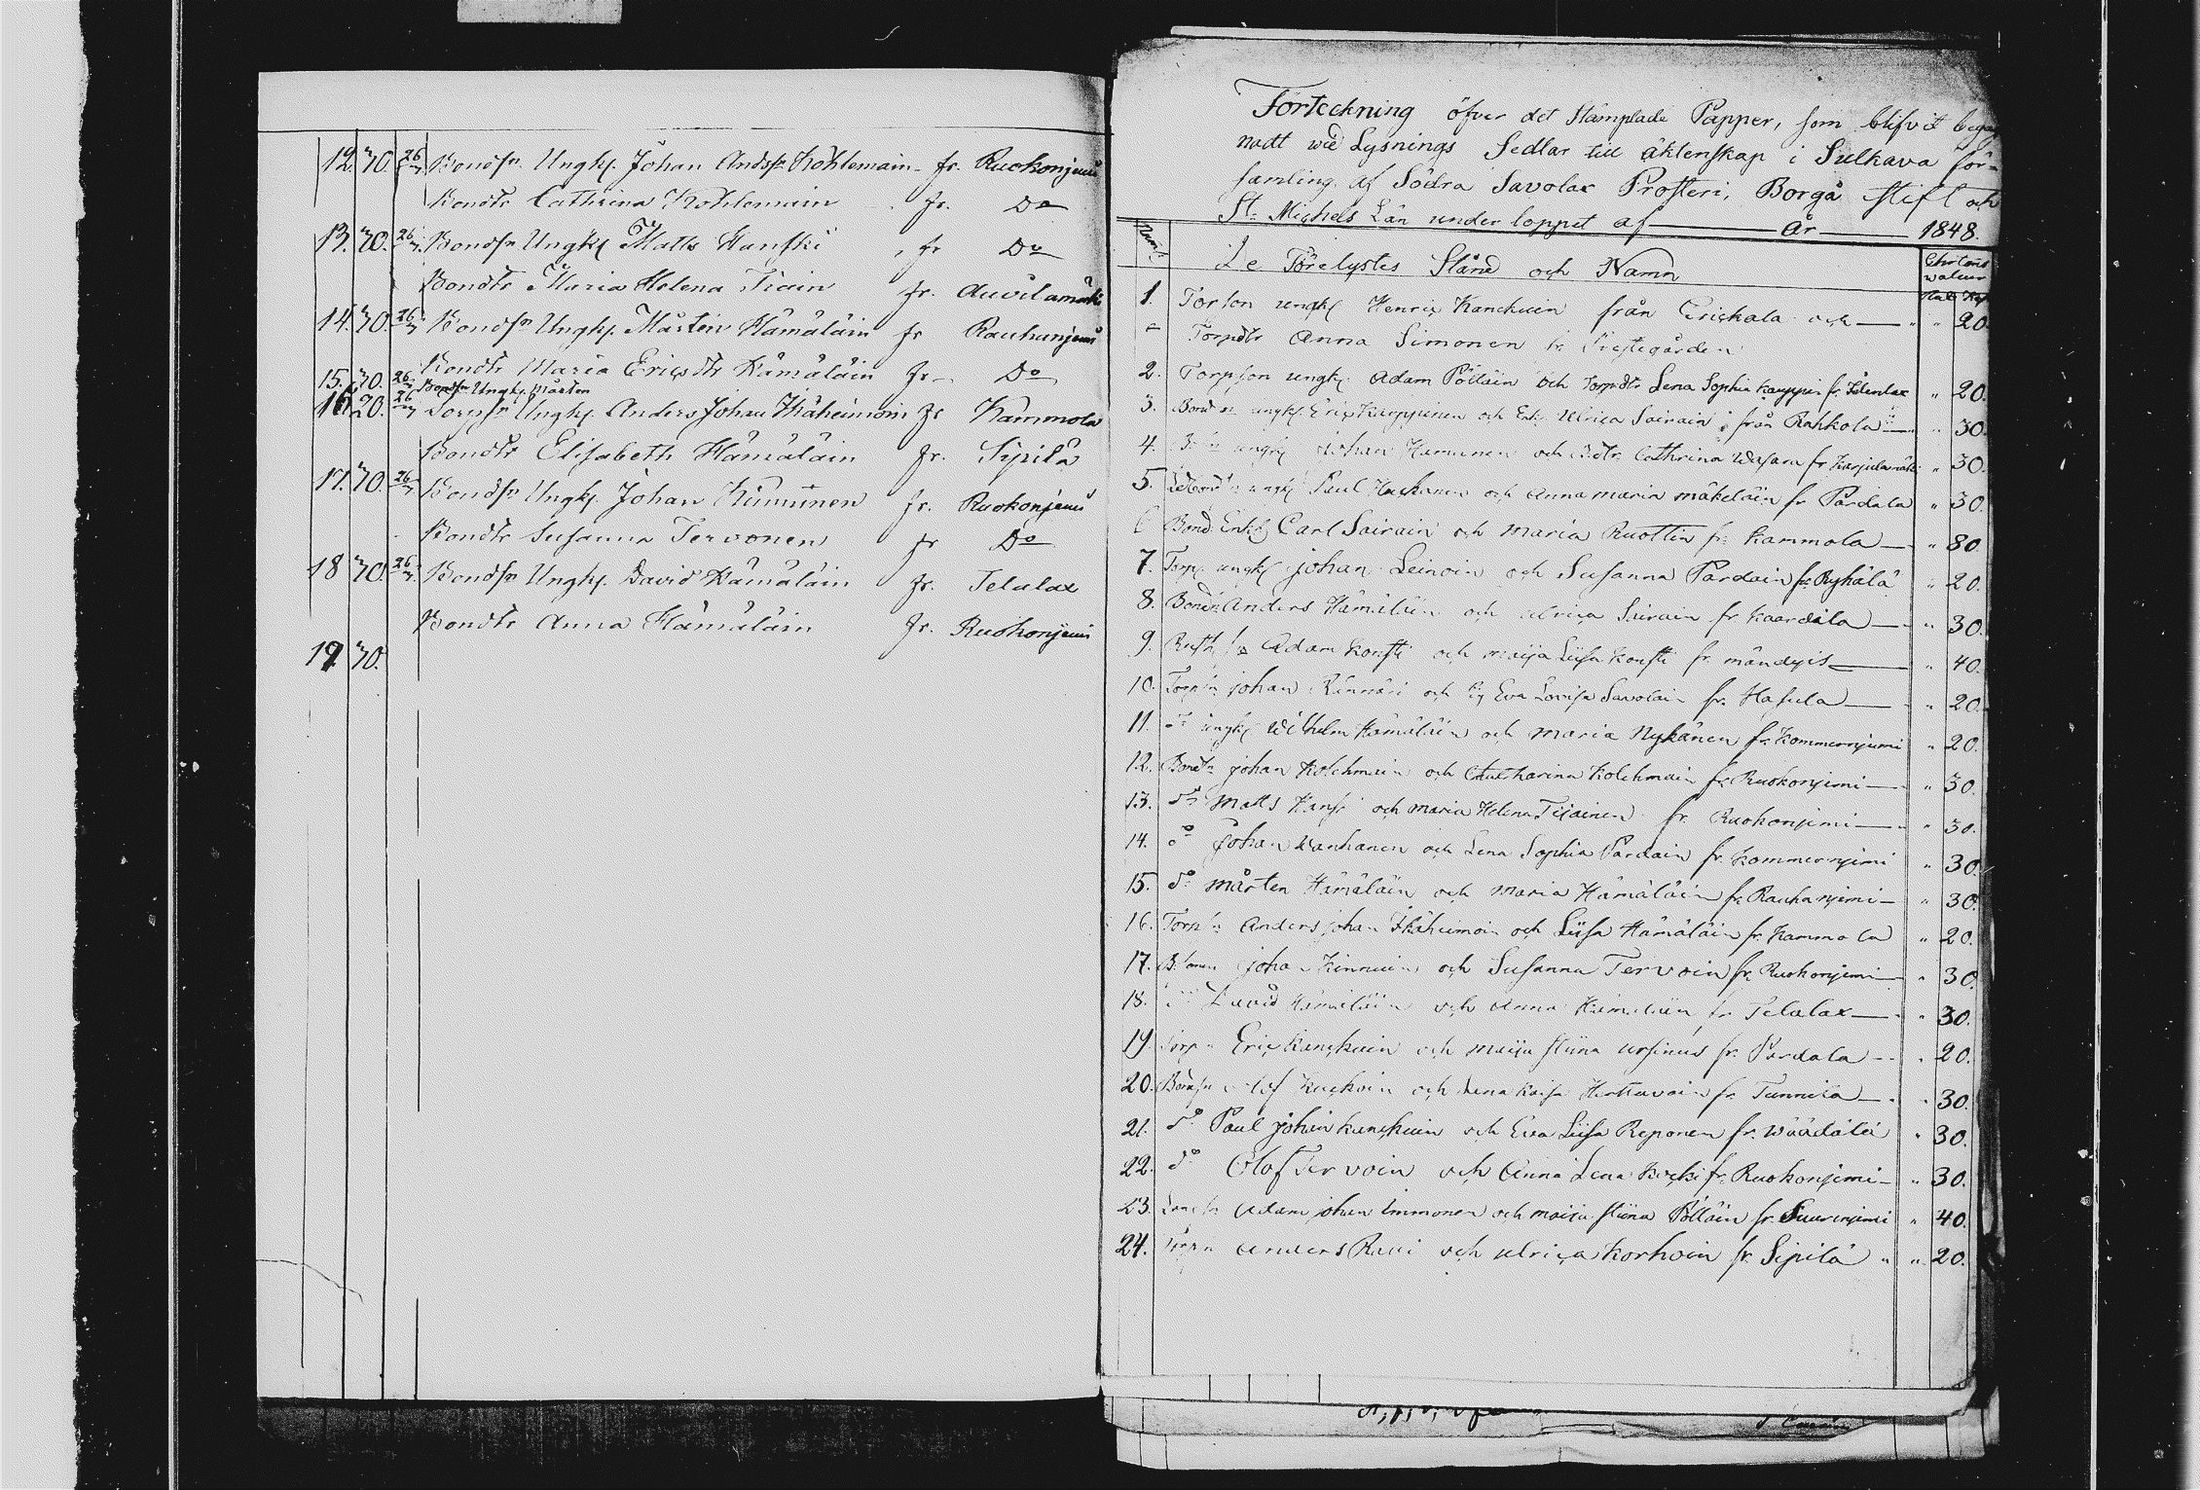 12. 30. 26/7 Bondsn. Ungk. Johan Andsn Kohlemain fr. Ruokonjemi
Bondtr Cathrina Kohlemain fr. Do
13. 30. 26/7 Bondsn Ungk Matts Hanski fr Do
Bondtr Maria Helena Tiain fr. Auvilamäki
14. 30. 26/7 Bondsn Ungk. Mårten Hämäläin fr Rauhanjemi
Bondtr Maria Ericsdtr Hämäläin fr Do
15. 30. 26/7 Bondsn Ungk. Mårten
16. 20. 26/7 Torpsn Ungk. Anders Johan Ikäheimoin fr Kammola
Bondtr Elisabeth Hämäläin fr. Sipilä
17. 30. 26/7 Bondsn Ungk. Johan Kinnunen fr. Ruokonjemi
Bondtr Susanna Tervonen fr Do
18 30. 26/7 Bondsn Ungk. David Hämäläin fr. Telalax
Bondtr Anna Hämäläin fr. Ruokonjemi
19. 30.
Förteckning öfver det Stämplade Papper, som blifvit begag
nadt wid Lysnings Sedlar till äktenskap i Sulkava för-
samling af Södra Savolax Prosteri, Borgå Stift och
St. Michels Län under loppet af år 1848.
De Förelystes Stånd och Namn
1. Torpson ungk Henric Kanckuin från och 20
Torpdtr Anna Simonen fr. Prestegården
2. Torpson ungk. Adam Pölläin och Torpdtr Lena Sophia Kauppi fr. Idenlax 20.
3. Bondsn ungk. Eric Karppinen och Enk. Ulrica Sairain från Rahkola 30
4. ungk Johan och Bdtr Cathrina fr. Karjulamäki 30
5. ungk Paul och Anna Maria Mäkeläin fr Pardala 30.
6 Bond Enkl Carl Sairain och Maria Ruottin fr. Kammola 30
7. Torp. ungk Johan Leinoin och Susanna Pardain fr Ryhälä 20.
8. Bondsn Anders Hämäläin och Ulrica Sairain fr Kaardila 30.
9. Adam Konsti och Maija Liisa Konsti fr 40.
10. Torpsn Johan Kinnari och Pig Eva Lovisa Savolain fr. Hasula 20.
11. do ungk Wilhelm Hämäläin och Maria Nykänen fr. Kommernjemi 20.
12. Bondsn Johan Kolehmain och Catharina Kolehmain fr Ruokonjemi 30
13. do Matts Hanski och Maria Helena Tijainen fr. Ruokonjemi 30.
14. do Johan Wanhanen och Lena Sophia Pardain fr. Kommernjemi 30.
15. do Mårten Hämäläin och Maria Hämäläin fr. Rauhanjemi 30.
16. Torpsn Anders Johan Ikäheimoin och Liisa Hämäläin fr. Kammola 20.
17. Johan Kinnuin och Susanna Tervoin fr. Ruokonjemi 30
18. do David Hämäläin och Anna Hämäläin fr Telalax 30.
19. Torpsn Eric Kanckuin och Maija Stiina Ursinus fr. Pardala 20.
20. Bondsn Olof Kuckoin och Lena Kaisa fr. Tunnila 30.
21. do Paul Johan Kanckuin och Eva Liisa Reponen fr. Wäädälä 30.
22. do Olof Tervoin och Anna Lena Kocki fr. Ruokonjemi 30.
23. Adam Johan Immonen och Maija Stiina Pöllöin fr. Suurenjemi 40.
24. Torpsn Anders Ravi och Ulrica Korhoin fr. Sipilä 20.